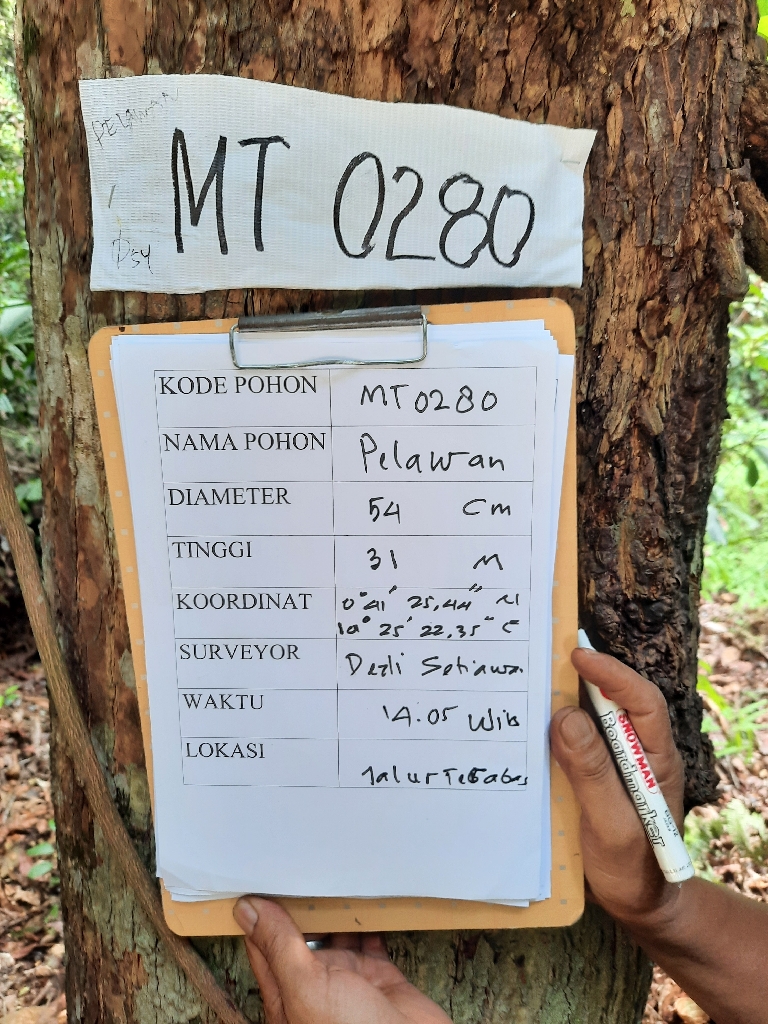 PELAWAN
MT 0280
D54
KODE POHON MT 0280
NAMA POHON Pelawan
DIAMETER 54 Cm
TINGGI 31 M
KOORDINAT 0° 41' 25,44" N
10° 25' 22,35" E
SURVEYOR Dezli Setiawan
WAKTU 14.05 Wib
LOKASI Jalur
SNOWMAN
Boardmarker